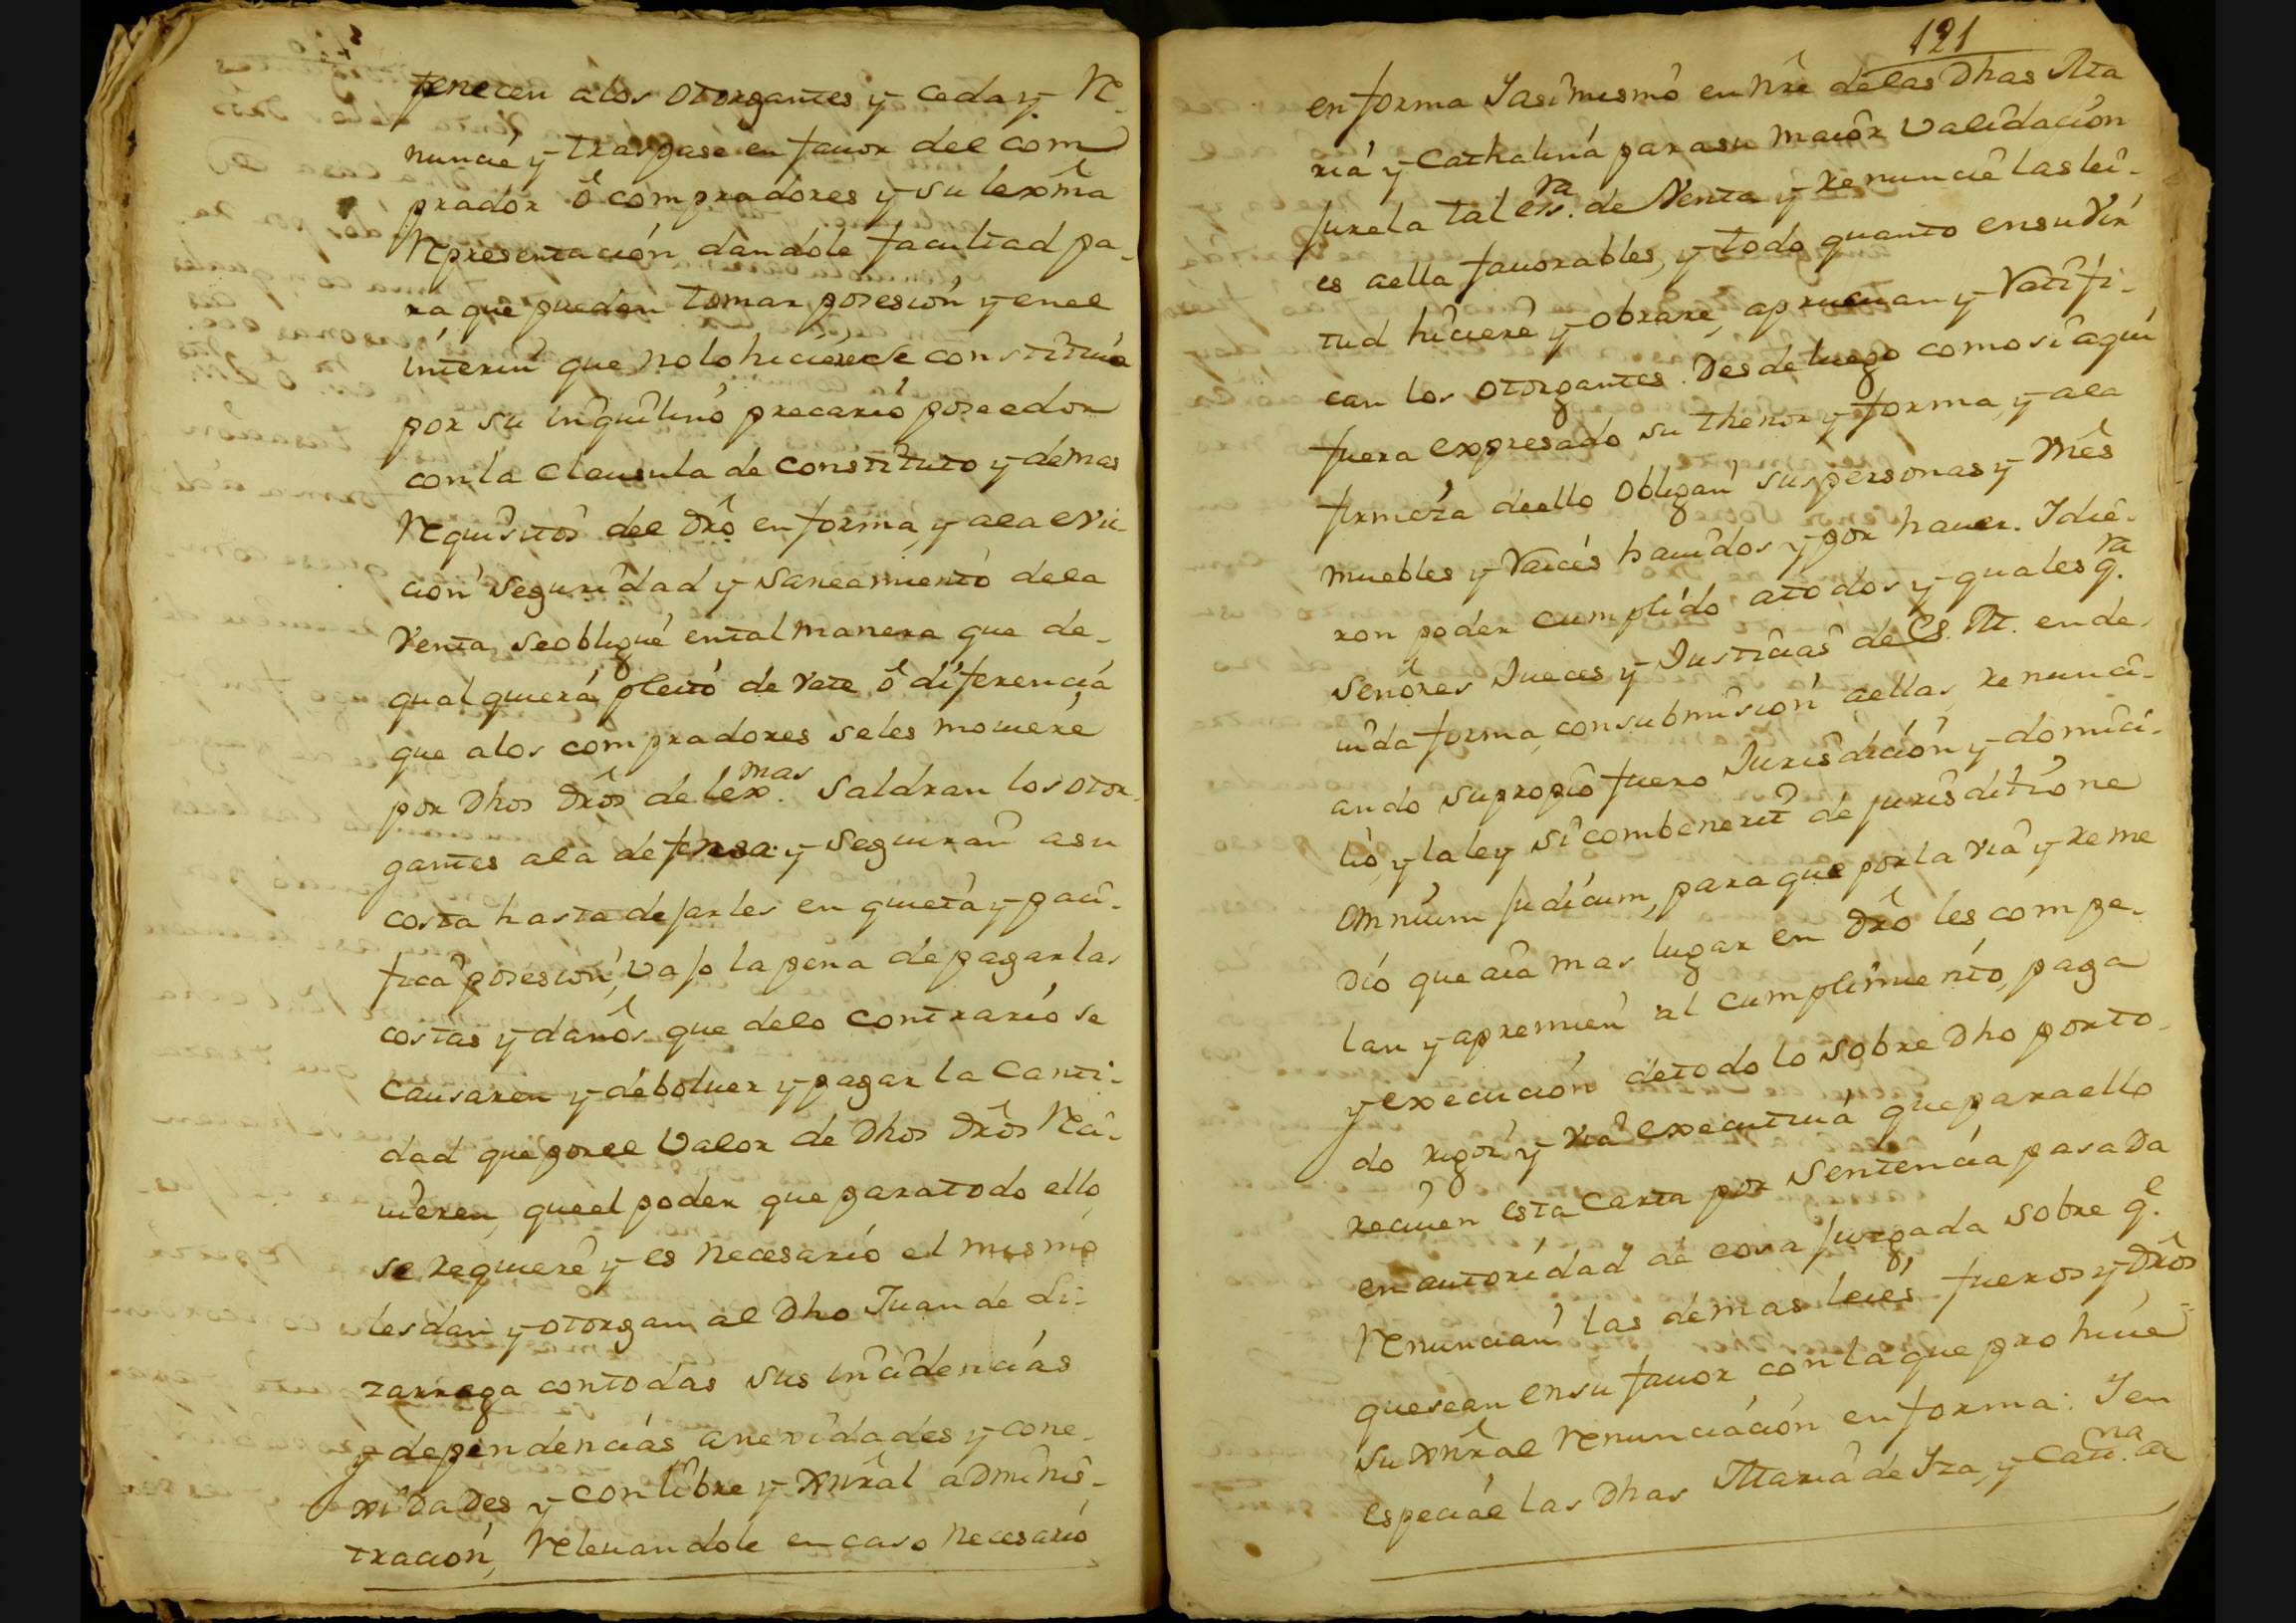 tenecen alos otorgantes y ceda y Re
nuncie y traspase en fauor del com
prador ô compradores y su lexma
Representacion dandole facultad pa-
ra que pueden tomar posesion y enel
interin que nolo hiciere se constituia
por su inquilino precario poseedor
conla clausula de constituto y demas
Requisitos del Dro en forma, y ala evic
cion seguridad y saneamiento dela
Venta, seobligue ental manera que de-
qualquiera pleito devate ô diferencia
que alos compradores seles mouiere
por Dhos Dros de lexmas. saldran los otor-
gantes ala defensa y seguiran asu
costa hasta dejarles en quieta y paci-
fica posesion, vajo lapena depagarlas
costas y daños que delo contrario se
causaren y debolver y pagar la canti-
dad que porel valor de Dhos Dros Reci-
uieren, queel poder que paratodo ello,
se requiere y es necesario el mismo
lesdan y otorgan al Dho Juan de Li-
zarraga contodas sus incidencias
y dependencias anexidades y cone-
xidades y con libre y Xnral adminis-
tracion, Releuandole en caso necesario
121
en forma Iasimismo en Nre delas Dhas Ma
ria y Cathalina parasu maior validacion
jurela tal essra. de Venta y renuncie las lei-
es aella fauorables, y todo quanto ensu vir
tud hiciere y obrare, aprueuan y Ratifi-
can los otorgantes. Desde luego como si aqui
fuera expresado su thenor y forma, y ala
firmeza deello obligan suspersonas y vnes
muebles y Raices hauidos y por hauer. Idie-
ron poder cumplido atodos y qualesqra.
señores Jueces y Justicias de Es. M. en de-
uida forma, con submision aellas, renunci-
ando supropio fuero Jurisdicion y domici-
lio, y la ley si combenerit de jurisditione
omnium judicum, para que por la via y reme
dio que aia mas lugar en Dro les compe-
lan y apremien al cumplimiento, paga
y execucion detodo lo sobre Dho porto-
do rigor y via executiua que paraello
reciuen esta Carta por sentencia pasada
en autoridad de cosa Juzgada sobre qe.
Renuncian las demas leies fueros y Dros
quesean ensu fauor con la que prohiue
su Xnral Renunciacion en forma: Ien
especial las Dhas Maria de Iza, y Catna. de